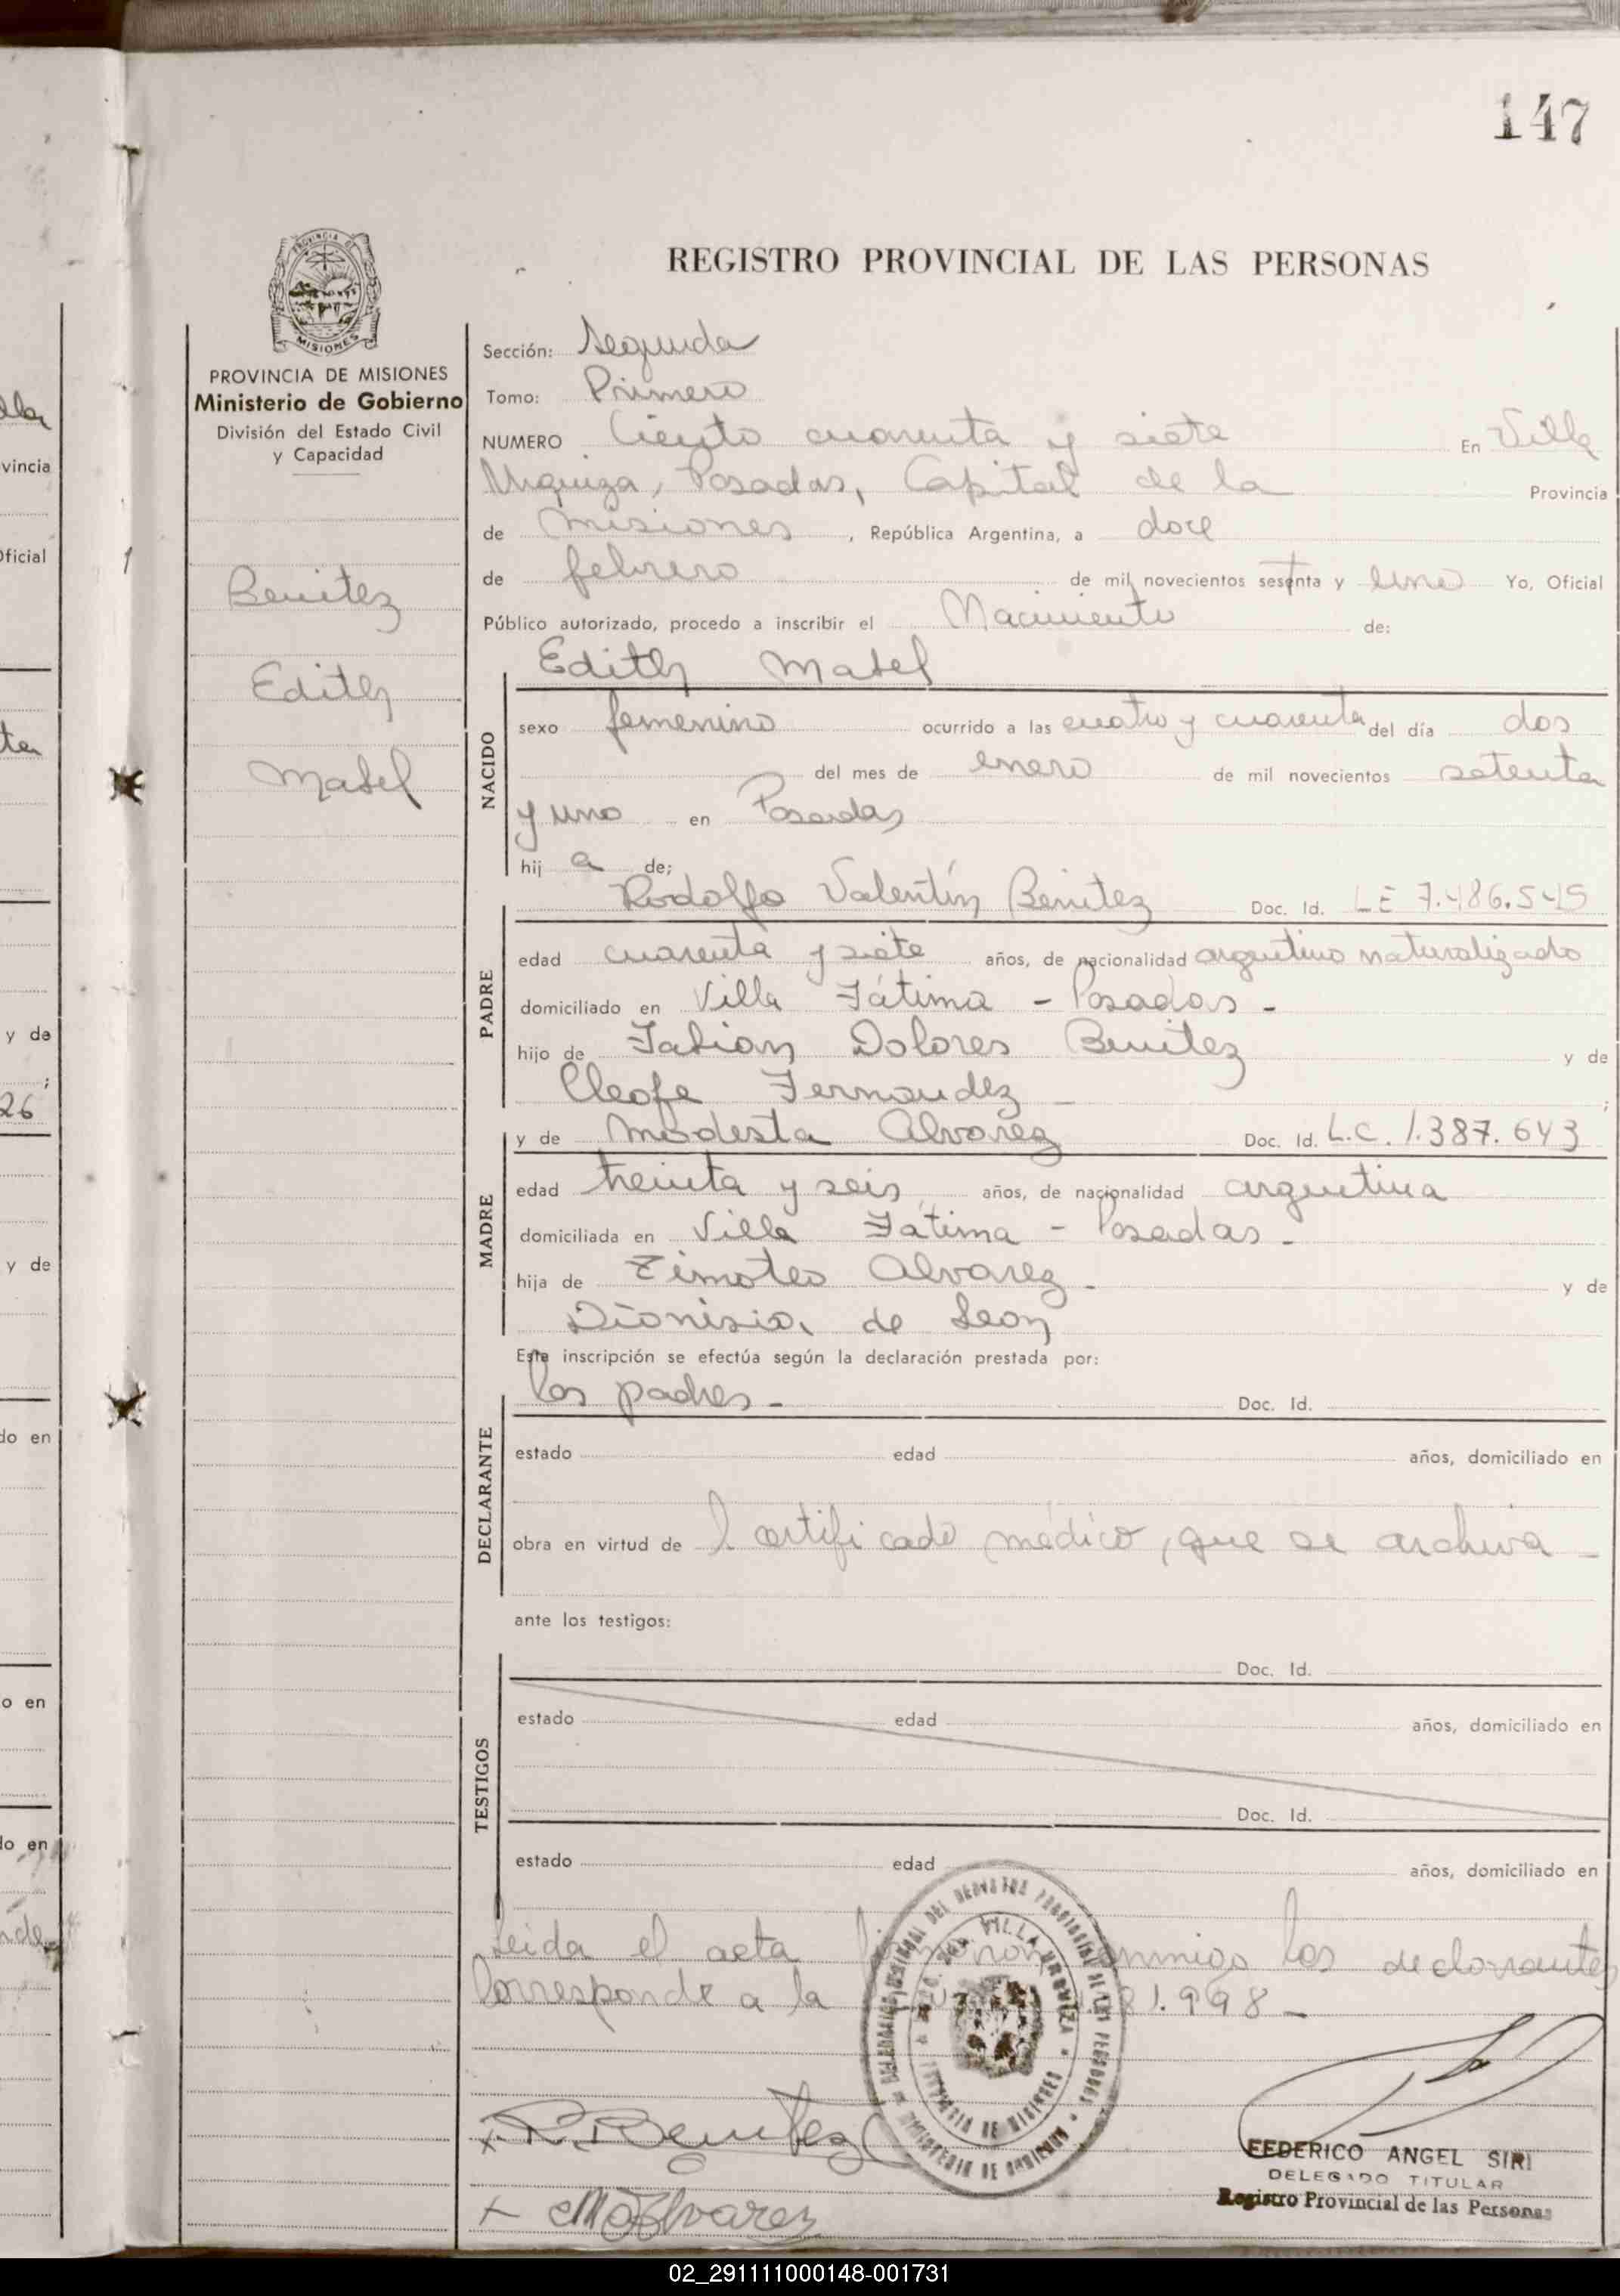 147
REGISTRO PROVINCIAL DE LAS PERSONAS
PROVINCIA DE MISIONES
Ministerio de Gobierno
División del Estado Civil
y Capacidad
Benitez
Edith
Mabel
Sección: Segunda
Tomo: Primero
NUMERO Ciento cuarenta y siete En Villa
Urquiza, Posadas, Capital de la Provincia
de Misiones, República Argentina, a doce
de febrero de mil novecientos sesenta y uno Yo, Oficial
Público autorizado, procedo a inscribir el Nacimiento de:
Edith Mabel
NACIDO
sexo femenino ocurrido a las cuatro y cuarenta del día dos
del mes de enero de mil novecientos setenta
y uno en Posadas
hij a de;
Rodolfo Valentín Benitez Doc. Id. LE 7.486.545
PADRE
edad cuarenta y siete años, de nacionalidad argentino naturalizado
domiciliado en Villa Fátima - Posadas -
hijo de Fabian Dolores Benitez y de
Cleofe Fernandez - ;
y de Modesta Alvarez Doc. Id. L.C. 1.387.643
MADRE
edad treinta y seis años, de nacionalidad argentina
domiciliada en Villa Fátima - Posadas -
hija de Timoteo Alvarez - y de
Dionisia de Leon
Esta inscripción se efectúa según la declaración prestada por:
los padres - Doc. Id.
DECLARANTE
estado edad años, domiciliado en
obra en virtud de l certificado médico, que se archiva -
ante los testigos:
Doc. Id.
TESTIGOS
estado edad años, domiciliado en
Doc. Id.
estado edad años, domiciliado en
Leida el acta firmaron conmigo los declarantes
Corresponde a la 21.998 -
VILLA URQUIZA
PROVINCIA DE MISIONES
MINISTERIO DE GOBIERNO
R. Benitez
M Alvarez
FEDERICO ANGEL SIRI
DELEGADO TITULAR
Registro Provincial de las Personas
02_291111000148-001731